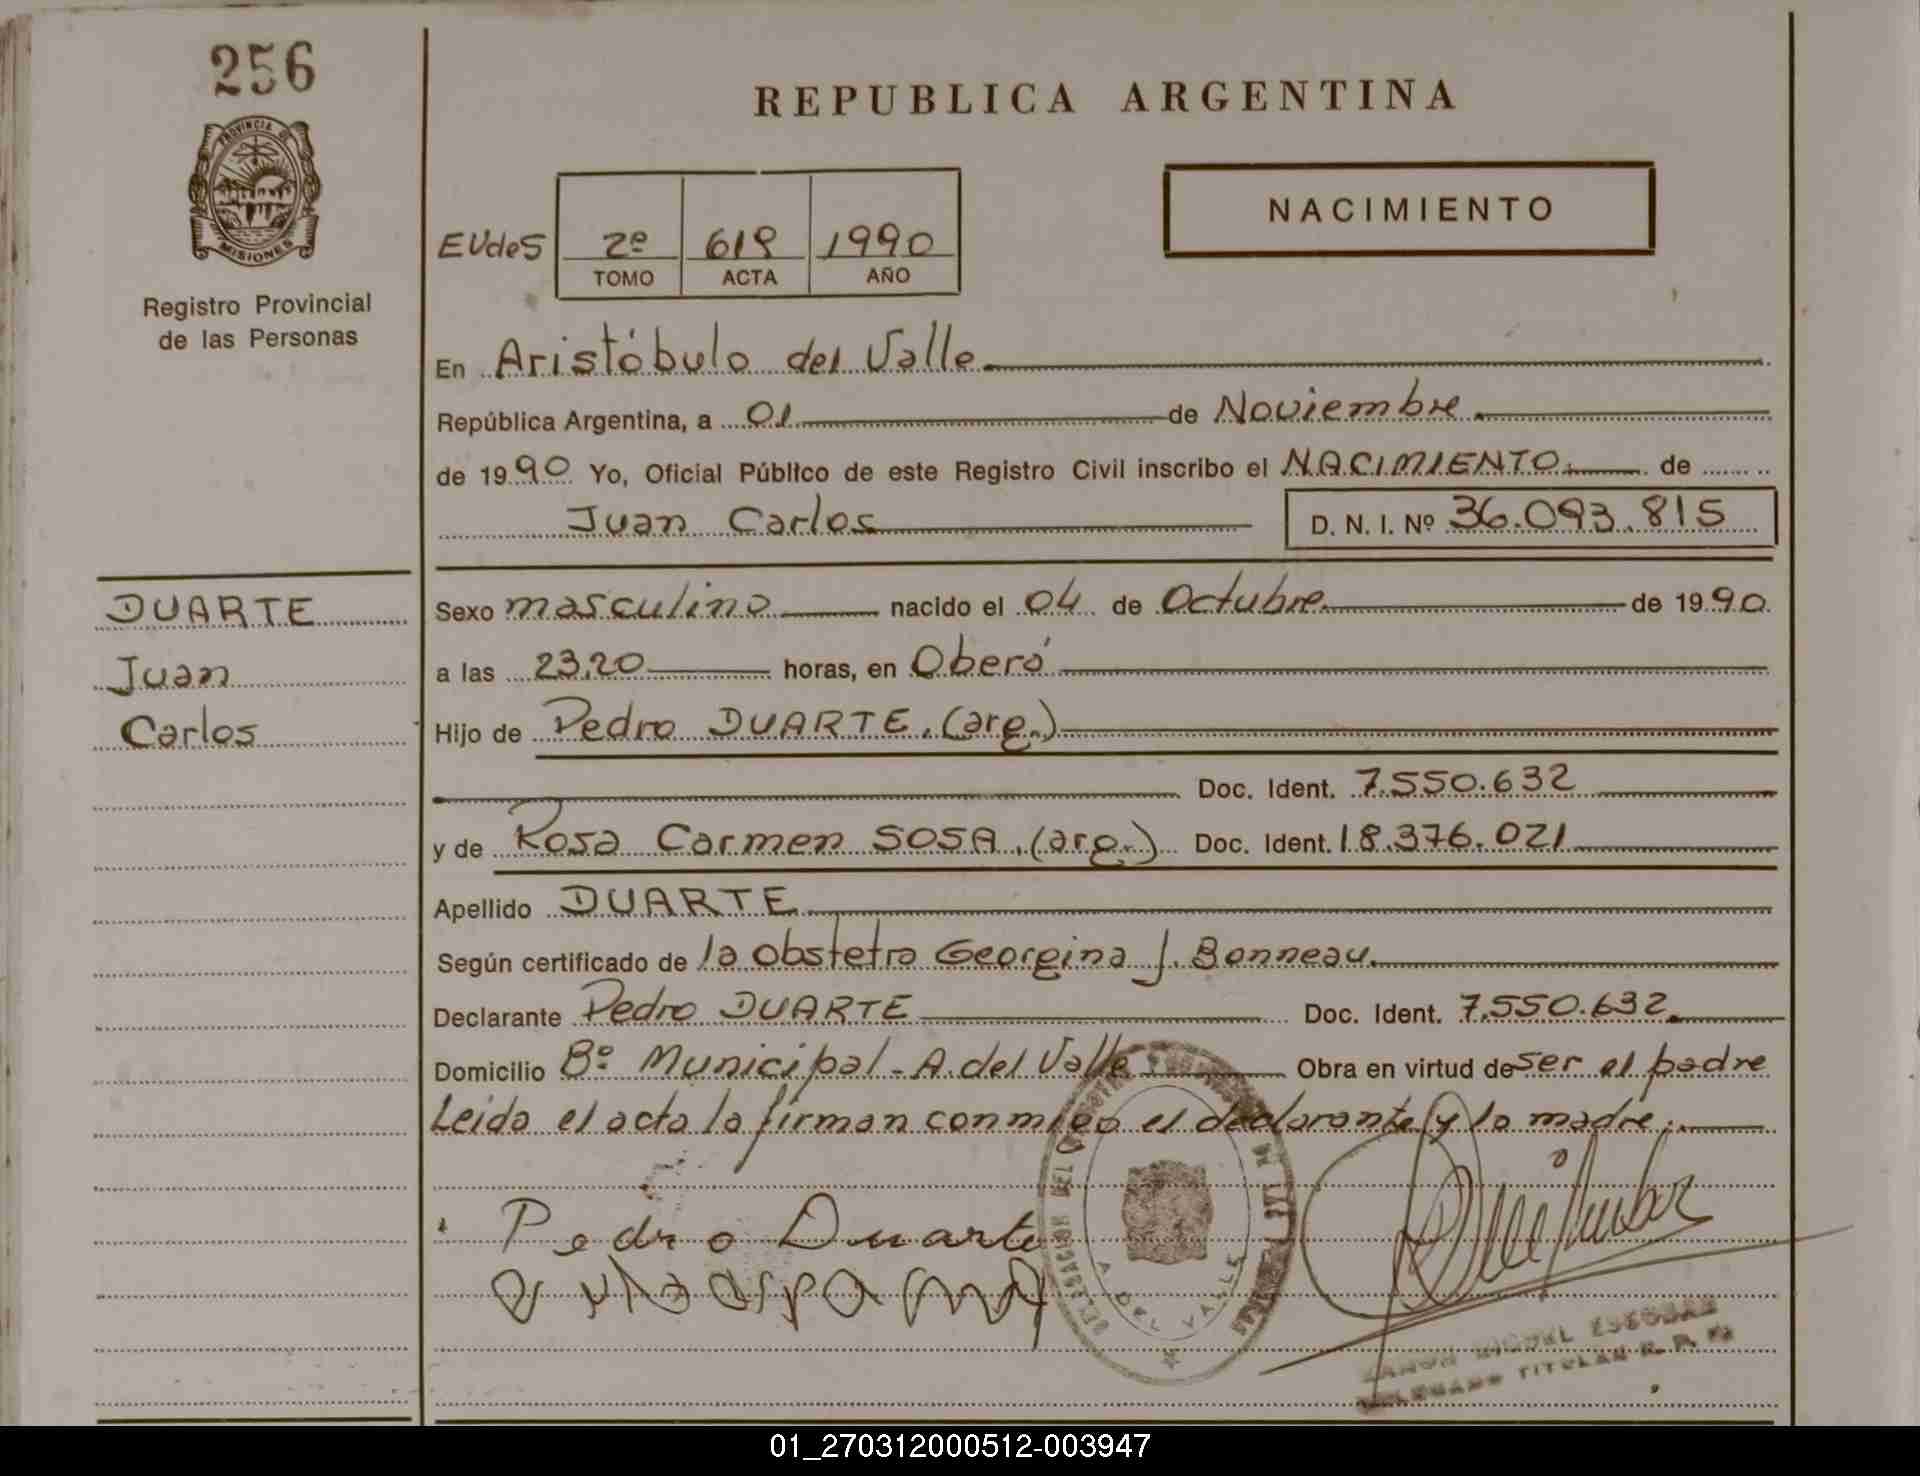 256
PROVINCIA DE
MISIONES
Registro Provincial
de las Personas
REPUBLICA ARGENTINA
NACIMIENTO
EVdeS 2º 619 1990
TOMO ACTA AÑO
En Aristóbulo del Valle
República Argentina, a 01 de Noviembre
de 1990 Yo, Oficial Público de este Registro Civil inscribo el NACIMIENTO de
Juan Carlos D. N. I. Nº 36.093.815
DUARTE
Juan
Carlos
Sexo masculino nacido el 04 de Octubre de 1990
a las 23,20 horas, en Oberá
Hijo de Pedro DUARTE. (arg.)
Doc. Ident. 7.550.632
y de Rosa Carmen SOSA. (arg.) Doc. Ident. 18.376.021
Apellido DUARTE
Según certificado de la obstetra Georgina J. Bonneau.
Declarante Pedro DUARTE Doc. Ident. 7.550.632
Domicilio Bº Municipal - A. del Valle Obra en virtud de ser el padre
Leida el acta la firman conmigo el declarante y la madre.
Pedro Duarte
DELEGACION DEL REGISTRO DE LAS PERSONAS
A. DEL VALLE
RAMON MIGUEL ESCOBAR
DELEGADO TITULAR R. P. P.
01_270312000512-003947